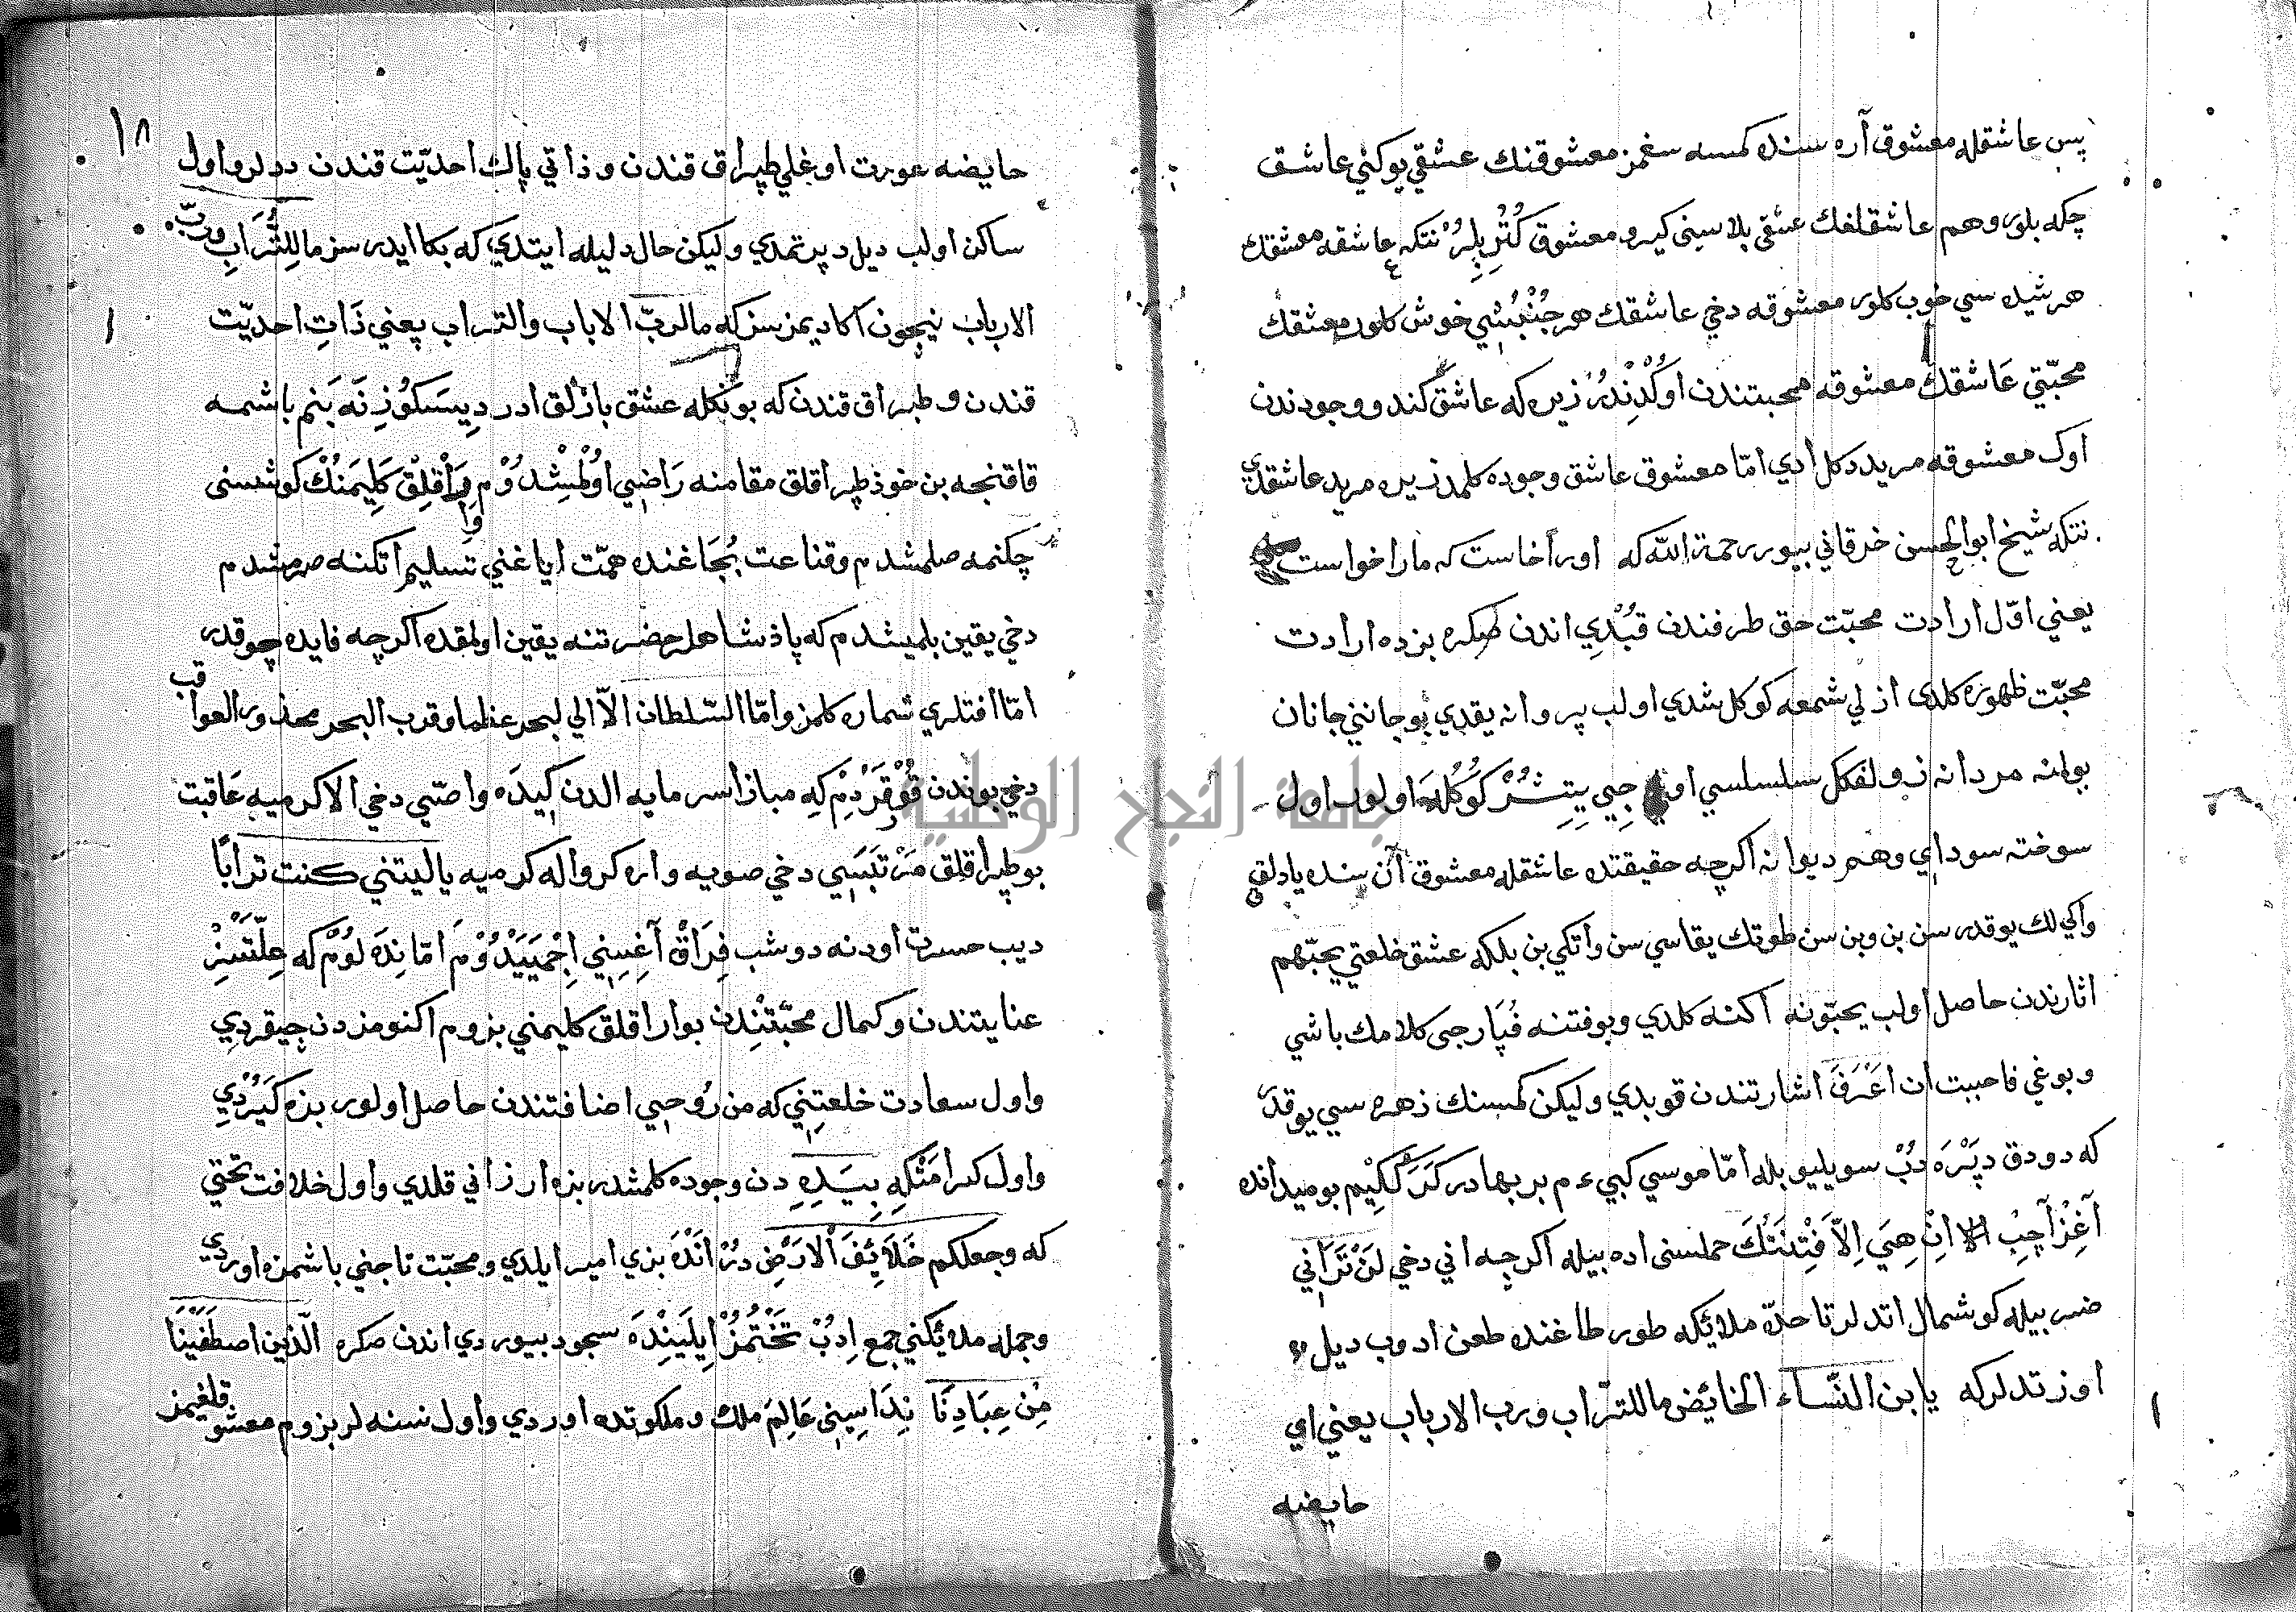 پس عاشقله معشوق آره سنده كمسه سغمز معشوقنك عشقي يوكني عاشق
چكه بلور وهم عاشقلغك عشقي بلاسيني كيرو معشوق كُتُرِ بِلِرْ نتكه عاشقه معشقك
هر شيده سي خوب كلور معشوقه دخي عاشقك هر جُنْبُشِي خوش كلور معشقك
محبّتي عاشقك معشوقه محبتندن اوكْدُنْدُرْ زيره كه عاشق كندو وجودندن
اوك معشوقه مريد دكل ادي امّا معشوق عاشق وجوده كلمدن زيره مريد عاشقدي
نتكه شيخ ابو الحسن خرقاني بيورر رحمة الله كه اورا خاست كه مارا خواست
يعني اوّل ارادت محبّت حق طرفندن قبُدِي اندن صكره بزده ارادت
محبّت ظهوره كلدى ازلي شمعه كوكل شدي اولب پروانه يقدي بو جانني جانان
بولمنه مردانه زولفكل سلسلسي اوي جِبِي يِتِشُرْ كَوُكُلَه اولوب اول
سوخته سوداي وهم ديوانه اكرچه حقيقتده عاشقله معشوق آن سنده يادلق
واكي لك يوقدر سن بن وبن سن طوتك يقاسي سن واتكي بن بلكه عشق خلعتي يحبّهم
اثارندن حاصل اولب يحبّونه اكنه كلدي وبوفتنه قُپَارجى كلامك باشي
وبوغي فاحببت ان اعرف اشارتندن قوبدي وليكن كمسنك زهره سي يوقدر
كه دودق دپْرَه دُبْ سويليو بله امّا موسي كبي م بر بهادر كَرَكَكِيم بوميدانده
آغِزْ آچِبْ ان هِيَ اِلَّا فِتْنَتُكَ حملسنى اده بيله اكرچه اني دخي لَنْ تَرَاني
ضرببيله كوشمال اتدلر تا حدّه ملائكه طور طاغنده طعن ادوب ديل
اوزتدلر كه يا بن النّساء الحائض ما للتّراب ورب الارباب يعني اي
حايضه
١٨
حايضه عورت اوغلي طپراق قندن وذاتي پاك احديّت قندن ددلر واول
ساكن اولب ديل دپرتمدي وليكن حال دليله ايتدي كه بكا ايدرسز ما لِلتُّرَابِ وربّ
الارباب نيچون اكا ديمزسز كه ما لربّ الاباب والتراب يعني ذَاتِ احديّت
قندن وطپراق قندن كه بونكله عشق بازلق ادر دِيسَكُوزِ نَه بَنم باشمه
قاقنجه بن خوذ طپراقلق مقامنه رَاضِي اوُلْمُشْدُوُم وَارَأقلِقْ كَلِيمَنُكْ كوشسنى
چكنمه صلمشدم وقناعت بُجَاغنده همّت اياغني تسليم اتكنه صرمشدم
دخي يقين بلميشدم كه پاذشاهلر حضرتنه يقين اولمقده اكرچه فايده چوقدر
امّا افتلري شماره كلمز وامّا السّلطان الا الي لبحر عظما وقرب البحر محذور العواقب
دخي بوندن قُوْقَرْدُمْ كِه مبازا سرمايه الدن كيدَه واصّي دخي الا كرميه عاقبت
بو طپراقلق مَرْتَبَسِي دخي صويه واره كرو اله كرميه يا ليتني كنت ترابًا
ديب حسرت اودنه دوشب فِرَاقْ آغِسِني اِچْمَيَيْدُوُمَ امّا نِدَه لوُمْ كه عِلَّتسِزْ
عنايتندن وكمال محبّتِندن بو اراقلق كليمني بزوم اكنومزدن چيقردِي
واول سعادت خلعتِنِي كه من رُوحِي اضافتندن حاصل اولور بزه كَيُرْدِي
واول كرامَتْكِه بِيَدِهِ دن وجوده كلمشدر بزه ارزاني قلدي واول خلافت تختي
كه وجعلكم خَلَائِفَ اْلاَرَضِ دُرْ انَدْه بزي امير ايلدي ومحبّت تاجني باشمزه اوردي
وجمله ملائكني جمع اِدُبْ تَخْتُمُزْ ايِلَيِنْدَه سجود بيوردي اندن صكره الّذين اصطَفَيْنَا
مِنْ عِبَادِنَا نِدَاسِنِى عَالِمَ ملك وملكوتده اوردي واول نسنه لر بزوم معشوقلغيمز